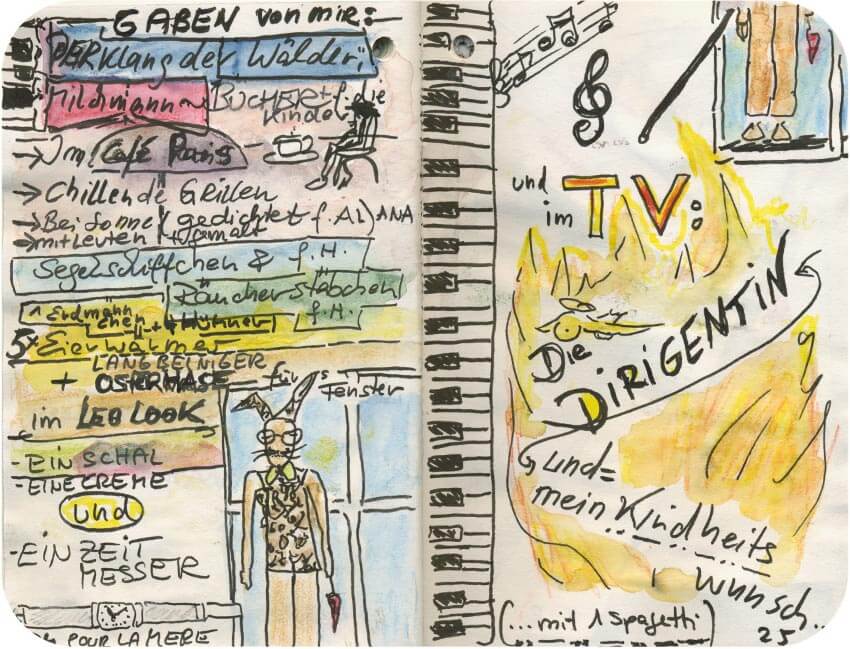 GABEN von mir:
DER Klang der Wälder;
Milchmann ~ BÜCHER + f. die
Kinder
→ Im Café Paris
→ Chillende Grillen
→ Bei Sonne (gedichtet f. AL) ANA
→ mit Leuten + gemalt
Segelschiffchen & f. H.
Räucherstäbchen
f. H.
1 Erdmänn
chen + 4 Hühner
5x Eierwärmer
LANGBEINIGER
+ OSERHASE für's
Fenster
im LEG LOOK
- EIN SCHAL
- EINE CREME
und
- EIN ZEIT
MESSER
POUR LA MERE
und
im TV:
Die
DIRIGENTIN
und =
mein Kindheits
wünsch..
(...mit 1 Spagetti)
25